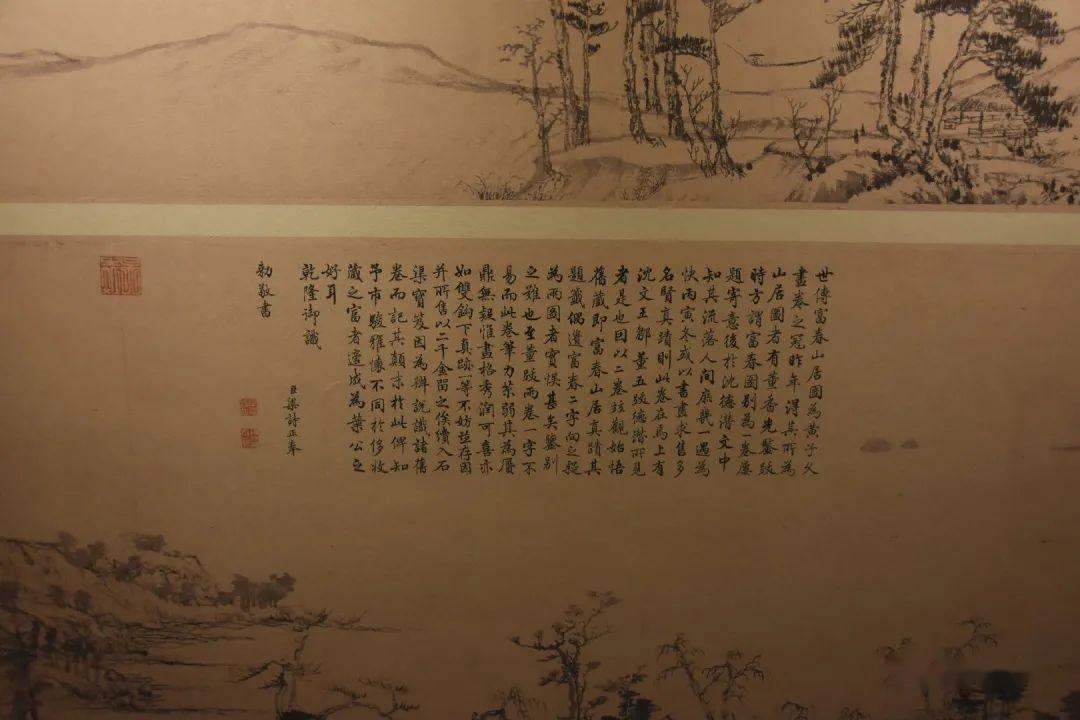 世傳富春山居圖為黃子久
畫卷之冠昨年得其所為
山居圖者有董香光鑒跋
時方謂富春圖別為一卷屢
題寄意後於沈德潛文中
知其流落人間庶幾一遇為
快丙寅冬或以書畫求售多
名賢真蹟則此卷在焉上有
沈文王鄒董五跋德潛所見
者是也因以二卷竝觀始悟
舊藏即富春山居真蹟其
題籤偶遺富春二字向之疑
為兩圖者實悞甚矣鑒別
之難也至董跋兩卷一字不
易而此卷筆力苶弱其為贗
鼎無疑惟畫格秀潤可喜亦
如雙鉤下真跡一等不妨竝存因
并所售以二千金留之俟續入石
渠寶笈因為辨說識諸舊
卷而記其顛末於此俾知
予市駿雅懷不同於侈收
藏之富者適成為葉公之
好耳
乾隆御識
臣梁詩正奉
勅敬書